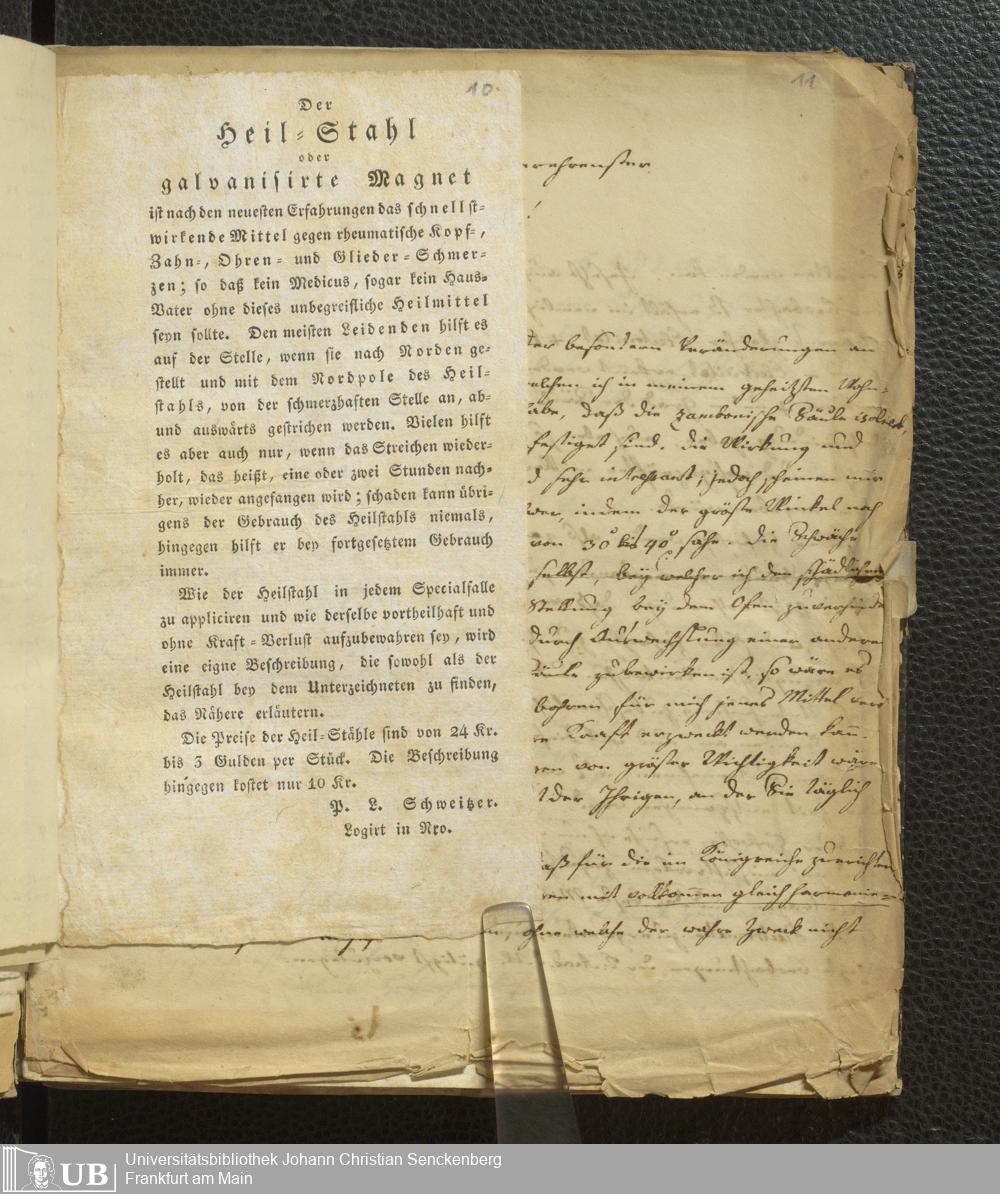 10.
11
Der
Heil-Stahl
oder
galvanisirte Magnet
ist nach den neuesten Erfahrungen das schnellst-
wirkende Mittel gegen rheumatische Kopf-,
Zahn-, Ohren- und Glieder-Schmer-
zen; so daß kein Medicus, sogar kein Haus-
Vater ohne dieses unbegreifliche Heilmittel
seyn sollte. Den meisten Leidenden hilft es
auf der Stelle, wenn sie nach Norden ge-
stellt und mit dem Nordpole des Heil-
stahls, von der schmerzhaften Stelle an, ab-
und auswärts gestrichen werden. Vielen hilft
es aber auch nur, wenn das Streichen wieder-
holt, das heißt, eine oder zwei Stunden nach-
her, wieder angefangen wird; schaden kann übri-
gens der Gebrauch des Heilstahls niemals,
hingegen hilft er bey fortgesetztem Gebrauch
immer.
Wie der Heilstahl in jedem Specialfalle
zu appliciren und wie derselbe vortheilhaft und
ohne Kraft-Verlust aufzubewahren sey, wird
eine eigne Beschreibung, die sowohl als der
Heilstahl bey dem Unterzeichneten zu finden,
das Nähere erläutern.
Die Preise der Heil-Stähle sind von 24 Kr.
bis 3 Gulden per Stück. Die Beschreibung
hingegen kostet nur 10 Kr.
P. L. Schweitzer.
Logirt in Nro.
besondern Veränderungen an
ich in meinem geheitzten Wohn-
daß die zambonische Säule
sind. die Wirkung und
sehr interessant; jedoch scheinen mir
indem der gröste Winkel noch
von 30° bis 40° sahe. die Schwäche
selbst, bey welcher ich den schädlichen
Stellung bey dem Ofen
durch Auswechslung einer andern
zubewirken ist, so wäre es
für mich jenes Mittel
Kraft erzweckt werden kann.
von gröser Wichtigkeit wäre
der Ihrigen, an der Sie täglich
für die im Königreiche
mit vollkommen gleich harmonie-
ohne welche der wahre Zweck nicht
UB
Universitätsbibliothek Johann Christian Senckenberg
Frankfurt am Main